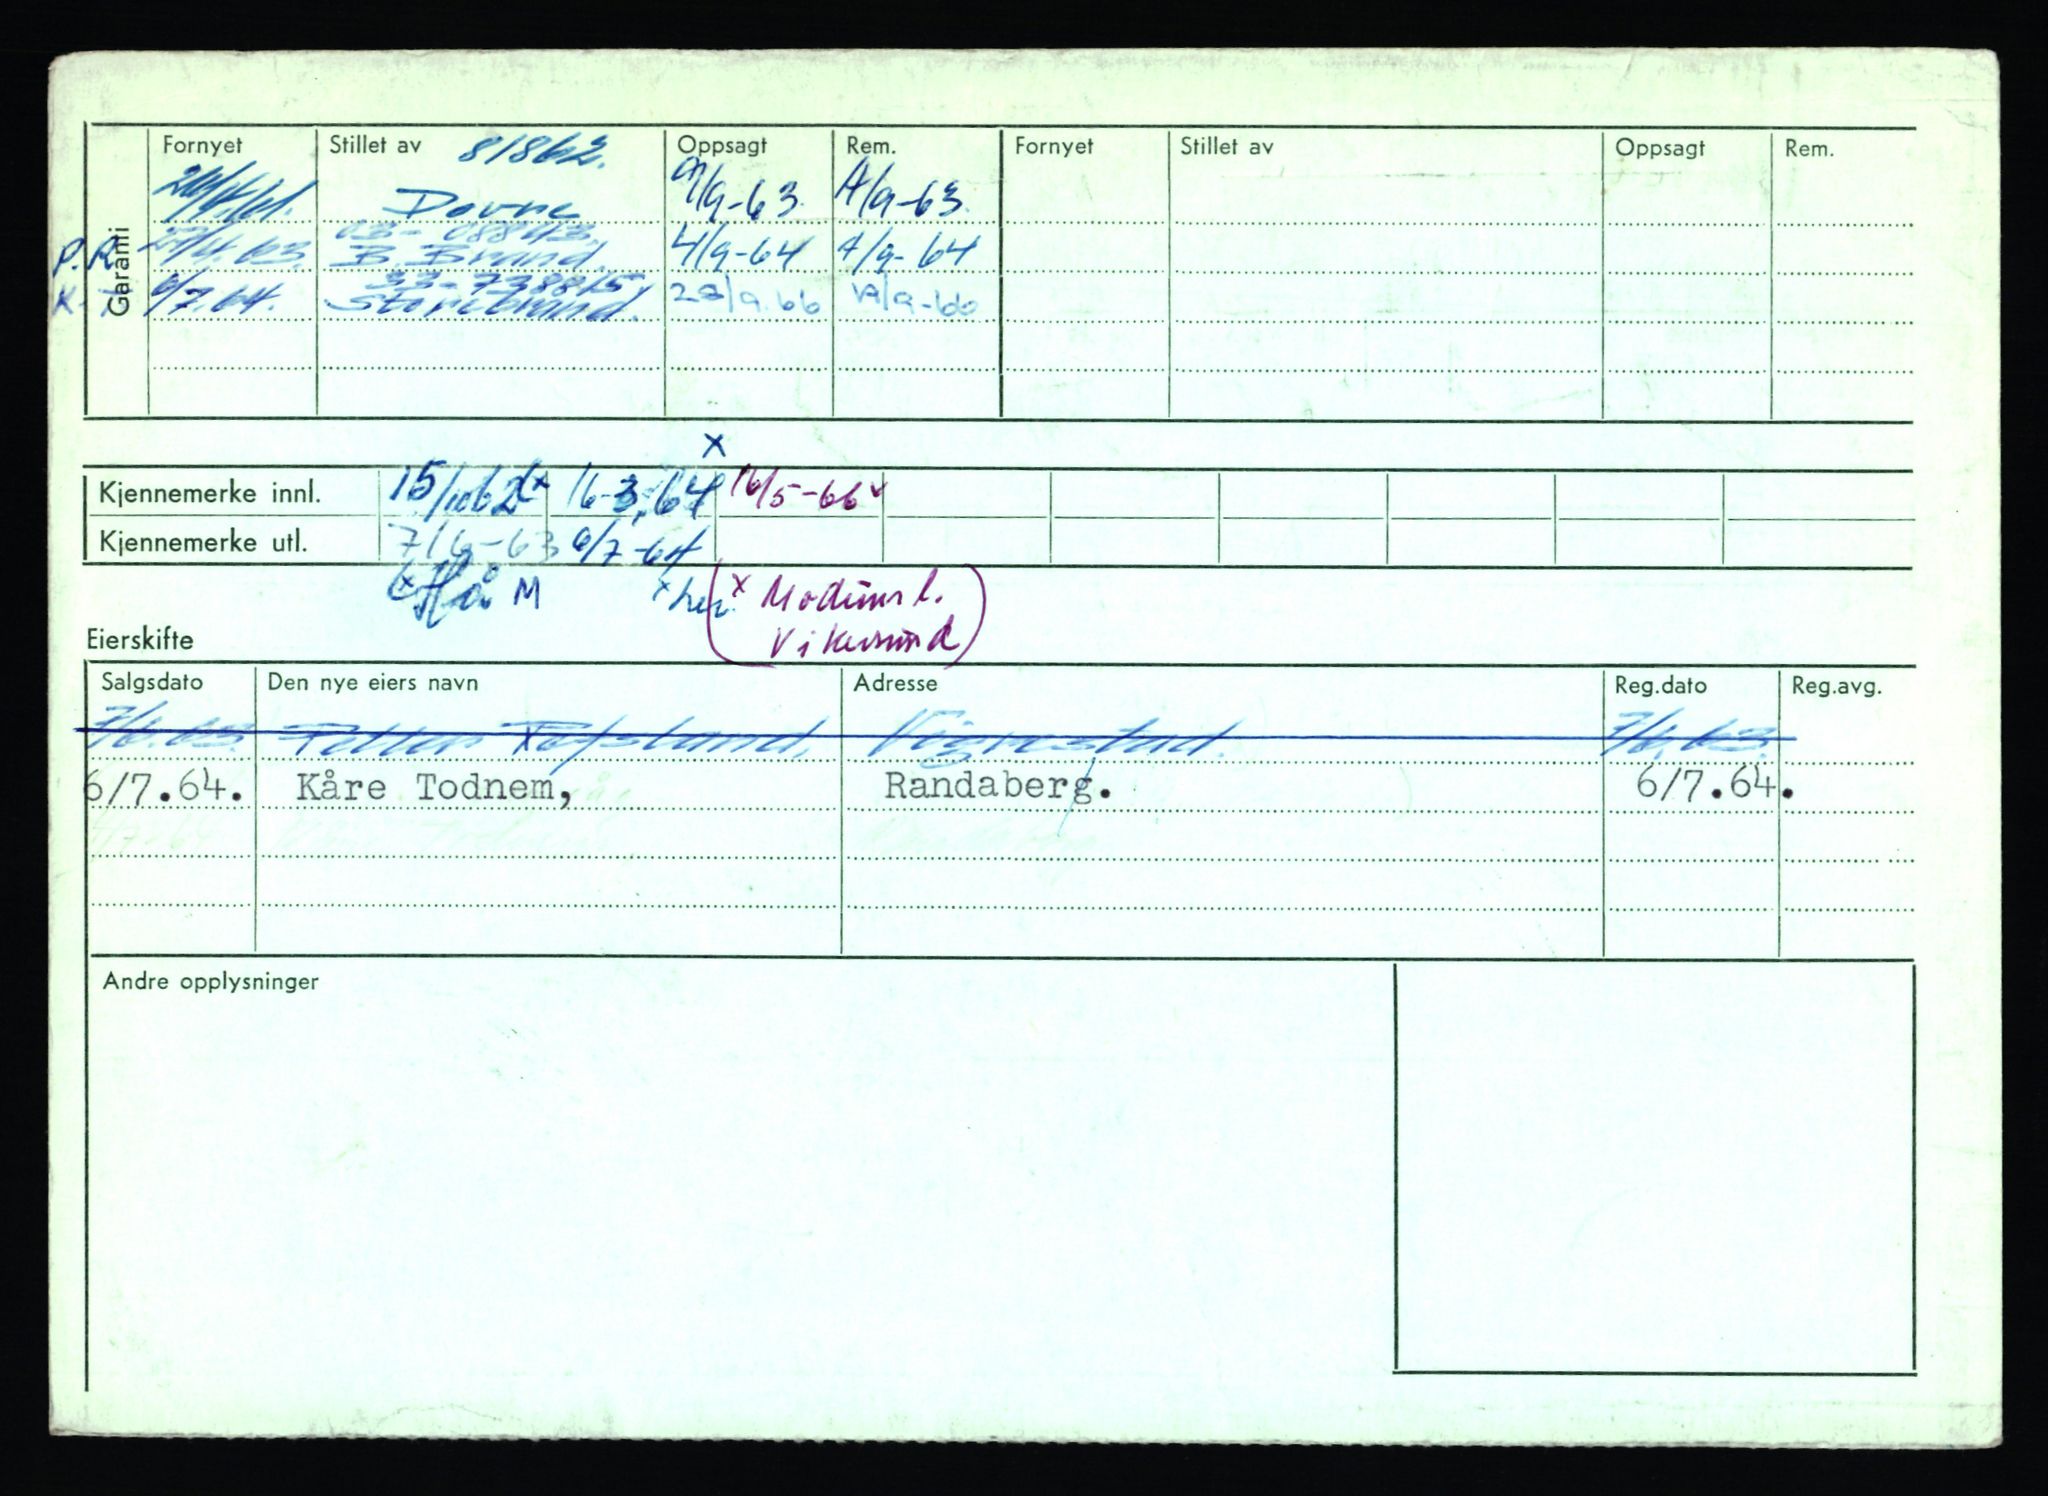 Garanti
Fornyet Stillet av 81862. Oppsagt Rem. Fornyet Stillet av Oppsagt Rem.
Dovre /9-63. /9-63.
P.R. 27/4.63. B. Brand. 4/9-64 4/9-64
33-738815,
K. T. 6/7.64. Storebrand. 28/9.66 /9-66
x
Kjennemerke innl. 15/10 62 x 16-3.64 16/5-66
Kjennemerke utl. 7/6-63 6/7-64
x Hå M x her. (x Modums l.
Vikersund)
Eierskifte
Salgsdato Den nye eiers navn Adresse Reg.dato Reg.avg.
7/6.63. Vigrestad. 7/6.63.
6/7.64. Kåre Todnem, Randaberg. 6/7.64.
Andre opplysninger